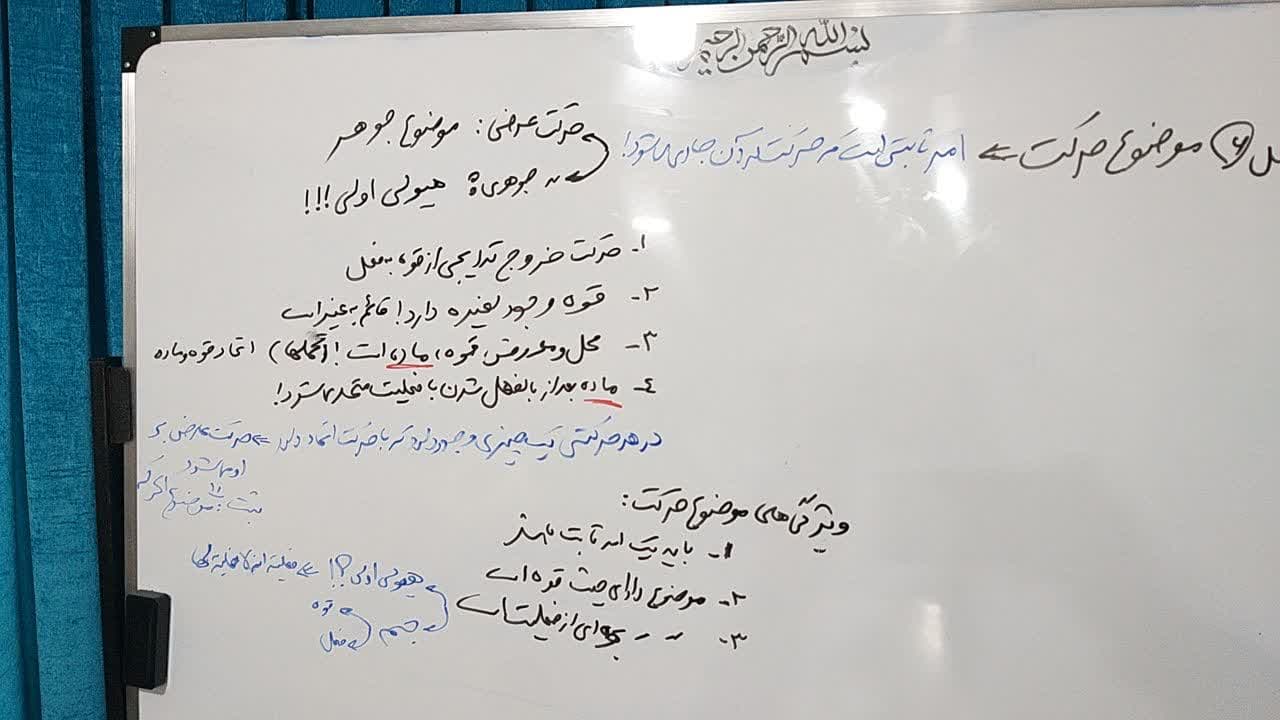 بسم الله الرحمن الرحیم
۶ موضوع حرکت ← امر ثابتی است که حرکت بر آن جاری می‌شود!
حرکت عرضی: موضوع جوهر
〃 جوهری: هیولی اولی!!!
۱- حرکت خروج تدریجی از قوه به فعل
۲- قوه وجود لغیره دارد! قائم به غیر است
۳- محل و معروض قوه، ماده است! اتحاد قوه و ماده
۴- ماده بعد از بالفعل شدن با فعلیت متحد می‌شود!
در هر حرکتی یک چیزی وجود دارد که با حرکت اتحاد دارد ← حرکت عارض بر
او می‌شود
ثبت: موضوع الحرکة
ویژگی‌های موضوع حرکت:
۱- باید یک امر ثابت باشد
۲- موضوع دارای حیث قوه است
۳- 〃 〃 بهره‌ای از فعلیت است
هیولی اولی؟! ← فعلیة أنه لا فعلیة لها
جسم
قوه
فعل